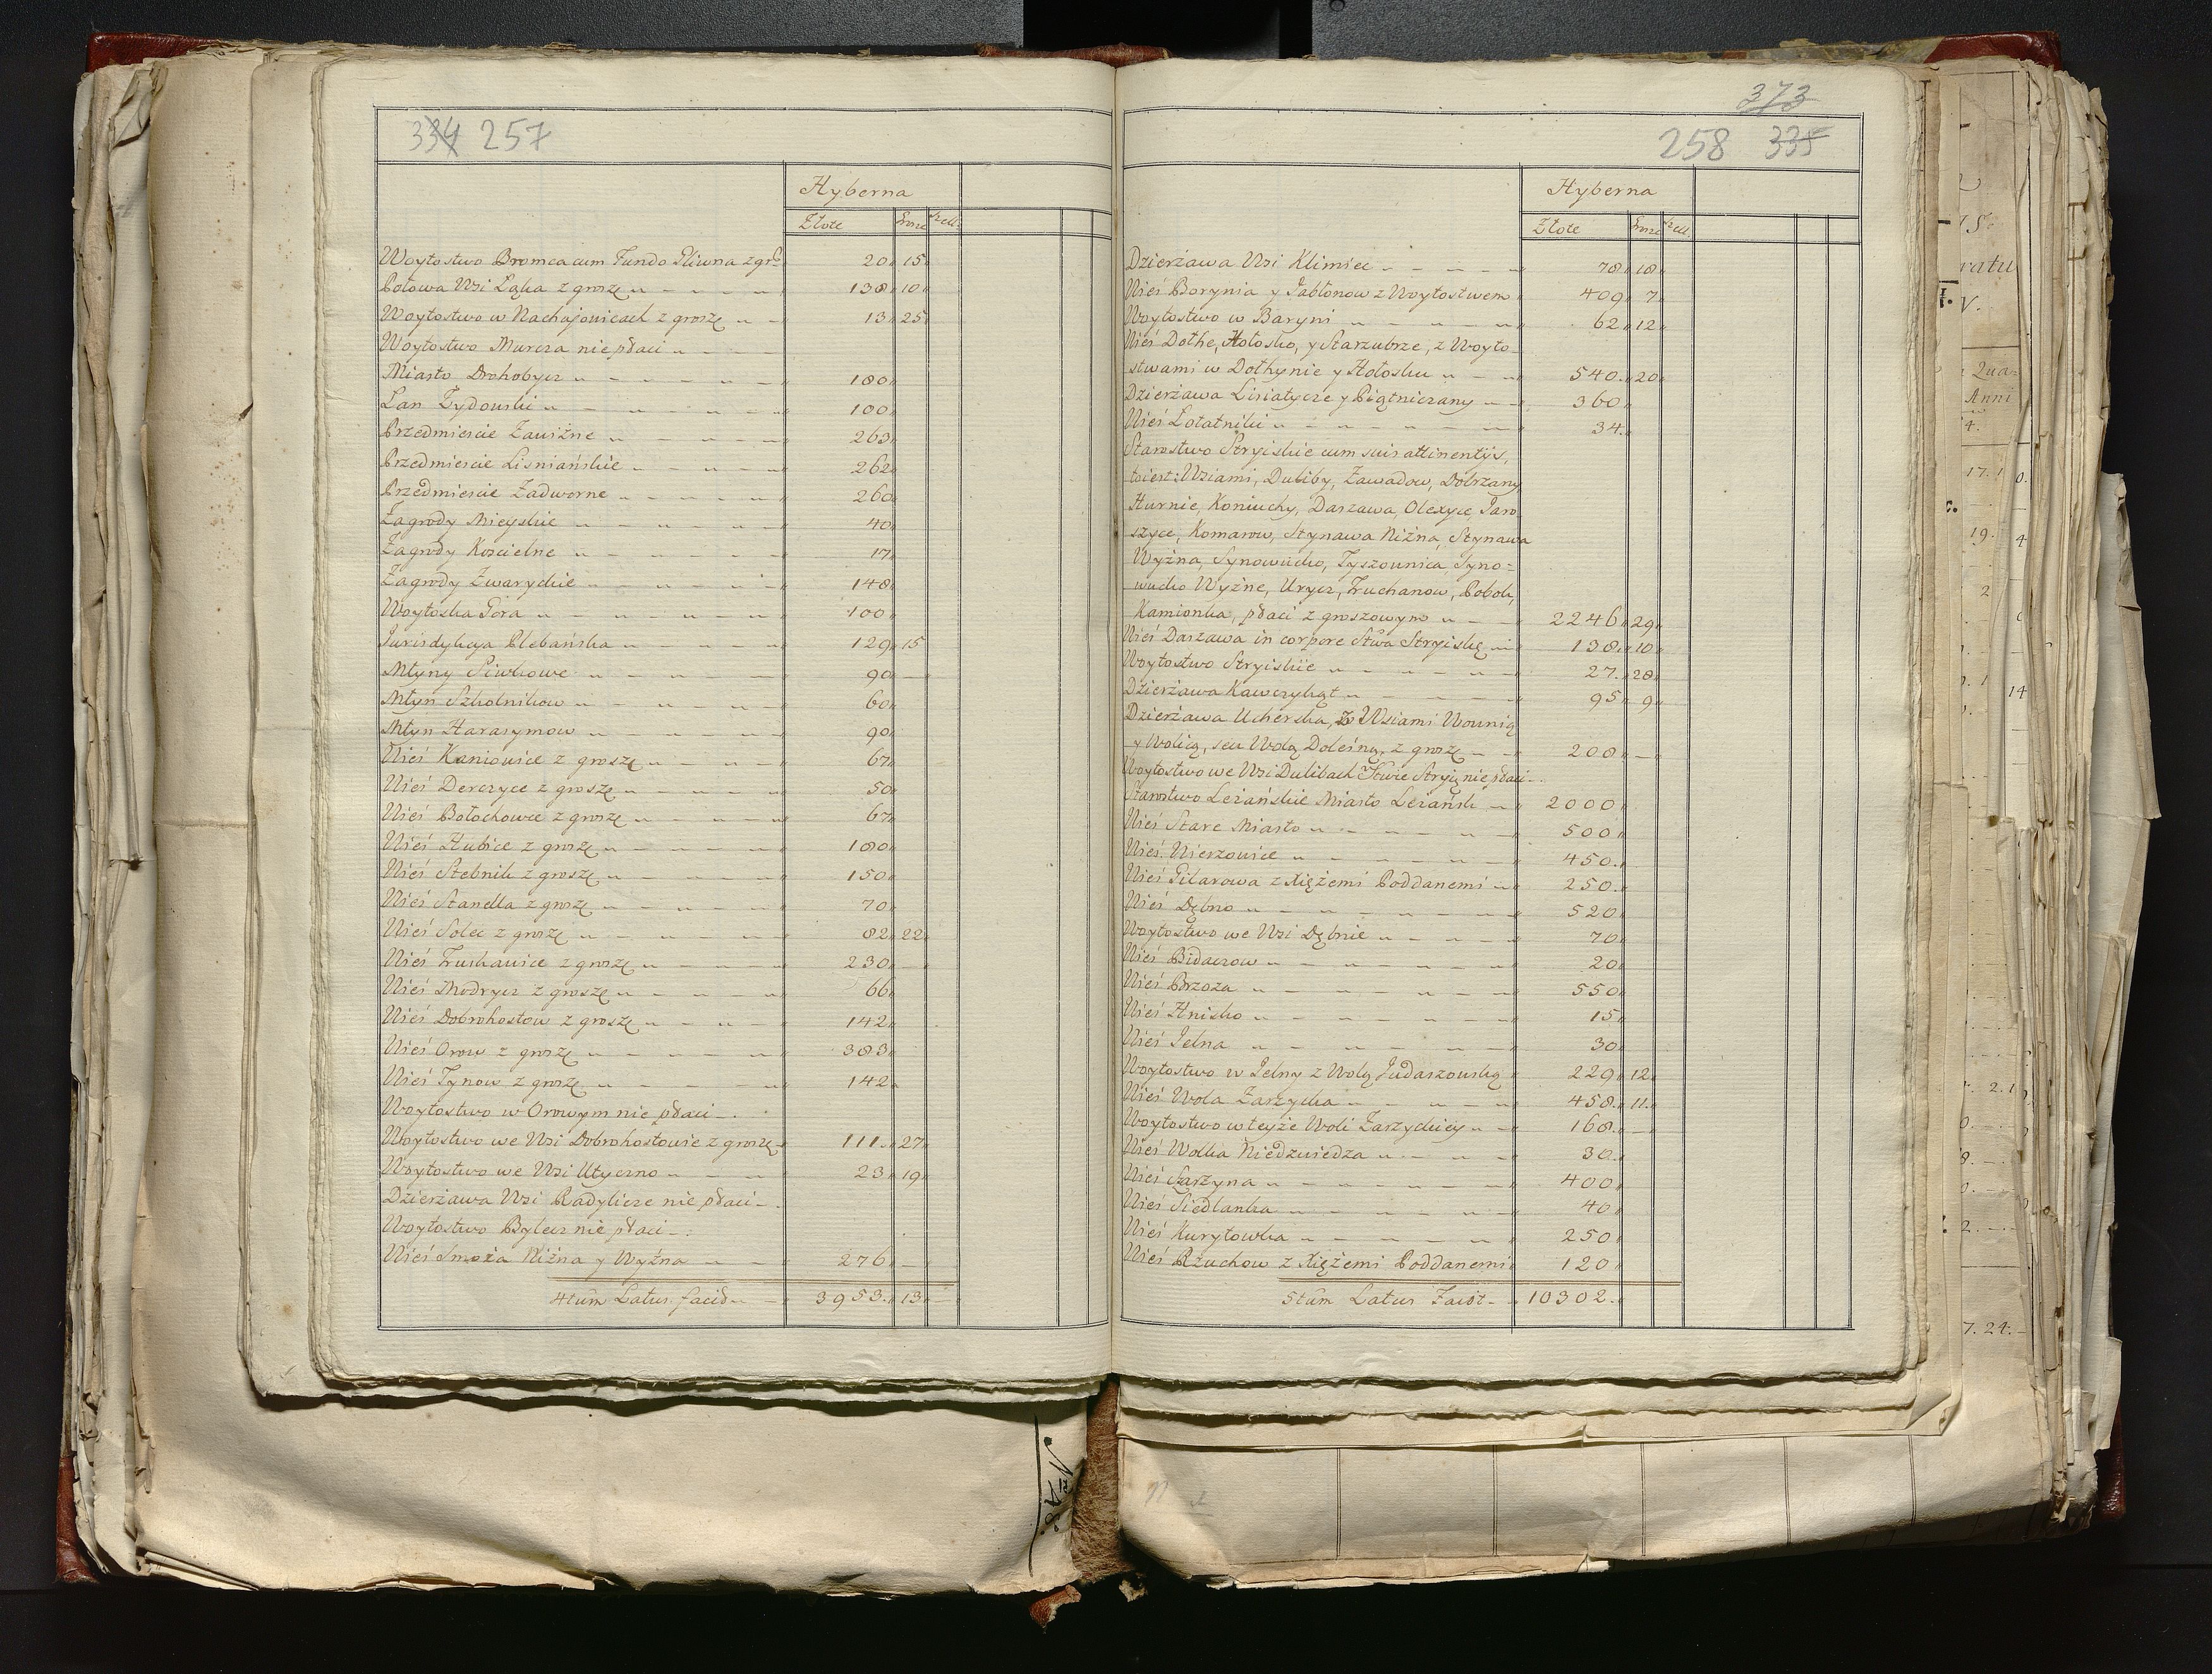 334 257
Hyberna
Złote Grosz Szelą.
Woytostwo Bromca cum Fundo Gliwna z gr: 20 15
Połowa Wsi Łąka z groszę 138 10
Woytostwo w Nachajowicach z groszę 13 25
Woytostwo Murcza nie płaci
Miasto Drohobycz 180
Łan Żydowski 100
Przedmieście Zawiżne 263
Przedmieście Lisniańskie 262
Przedmieście Zadworne 260
Zagrody Mieyskie 40
Zagrody Koscielne 17
Zagrody Zwaryckie 148
Woytoska Góra 100
Jurisdykcya Plebańska 129 15
Młyny Siwkowe 90 —
Młyn Szkolnikow 60
Młyn Harasymow 90
Wieś Raniowice z groszę 67
Wieś Derczyce z groszę 50
Wieś Bołochowce z groszę 67
Wieś Hubice z groszę 180
Wieś Stebnik z groszę 150
Wieś Stanella z groszę 70
Wieś Solec z groszę 82 22
Wieś Truskawice z groszę 230 —
Wieś Modrycz z groszę 66
Wieś Dobrohostow z groszę 142
Wieś Orow z groszę 383
Wieś Tynow z groszę 142
Woytostwo w Orowym nie płaci
Woytostwo we Wsi Dobrohostowie z groszę 111 27
Woytostwo we Wsi Utyczno 23 19
Dzierżawa Wsi Radylicze nie płaci
Woytostwo Bylicz nie płaci
Wieś Smoża Niżna y Wyżna 276 —
4tum Latus facit 3953 13 —
373
258 335
Hyberna
Złote Grosz Szelą.
Dzierżawa Wsi Klimiec 78 18
Wieś Borynia y Jabłonow z Woytostwem 409 7
Woytostwo w Baryni 62 12
Wieś Dołhe, Hołosko, y Starzubrze, z Woyto-
stwami w Dołhynie y Hołosku 540 20
Dzierżawa Lisiatycze y Piątniczany 360
Wieś Łotatniki 34
Starostwo Stryiskie cum suis attinentijs,
to iest: Wsiami, Duliby, Zawadow, Dobrzany,
Hurnie, Koniuchy, Daszawa, Olexyce, Jaro
szyce, Komarow, Stynawa Niżna, Stynawa
Wyżna, Synowucko, Tyszownica, Syno=
wucko Wyżne, Urycz, Truchanow, Pobok,
Kamionka, płaci z groszowym 2246 29
Wieś Daszawa in corpore Stwa Stryiskę 138 10
Woytostwo Stryiskie 27 28
Dzierżawa Kawczykąt 95 9
Dzierżawa Ucherska, z Wsiami Wownią
y Wolicą, seu Wolą Doleśną, z groszę 208 —
Woytostwo we Wsi Dulibach Stwie Stryię nie płaci
Starostwo Leżańskie Miasto Leżańsk 2000
Wieś Stare Miasto 500
Wieś Wierzowice 450
Wieś Gillarowa z Xiężemi Poddanemi 250
Wieś Dębno 520
Woytostwo we Wsi Dębnie 70
Wieś Bidaczow 20
Wieś Brzoza 550
Wieś Hnisko 15
Wieś Jelna 30
Woytostwo w Jelny z Wolą Judaszowską 229 12
Wieś Wola Zarzycka 458 11
Woytostwo w teyże Woli Zarzyckiey 168 —
Wieś Wolka Niedzwiedza 30
Wieś Sarzyna 400
Wieś Siedlanka 40
Wieś Kuryłowka 250
Wieś Rżuchow z Xiężemi Poddanemi 120
5tum Latus Facit 10302